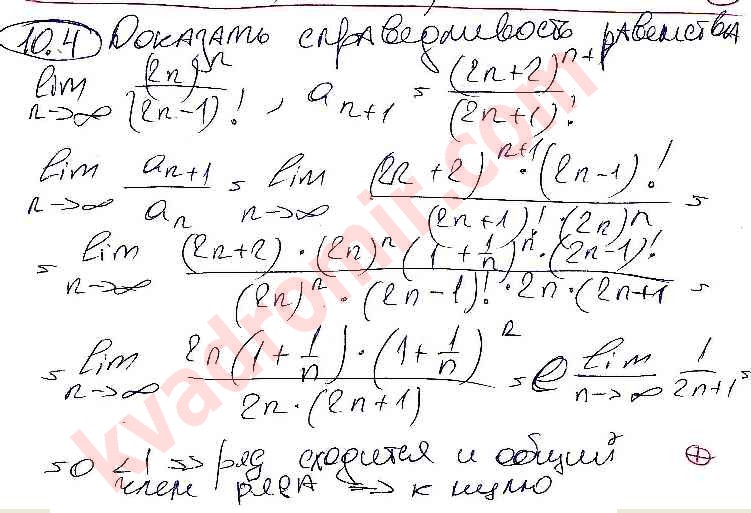 10.4 Доказать справедливость равенства
lim n→∞ (2n)^n / (2n-1)! , a_{n+1} = (2n+2)^{n+1} / (2n+1)!
lim n→∞ a_{n+1} / a_n = lim n→∞ (2n+2)^{n+1} · (2n-1)! / (2n+1)! · (2n)^n =
= lim n→∞ (2n+2) · (2n)^n · (1 + 1/n)^n · (2n-1)! / (2n)^n · (2n-1)! · 2n · (2n+1 =
= lim n→∞ 2n(1 + 1/n) · (1 + 1/n)^n / 2n · (2n+1) = e lim n→∞ 1 / 2n+1 =
= 0 < 1 => ряд сходится и общий ⊕
член ряда => к нулю
kvadromir.com